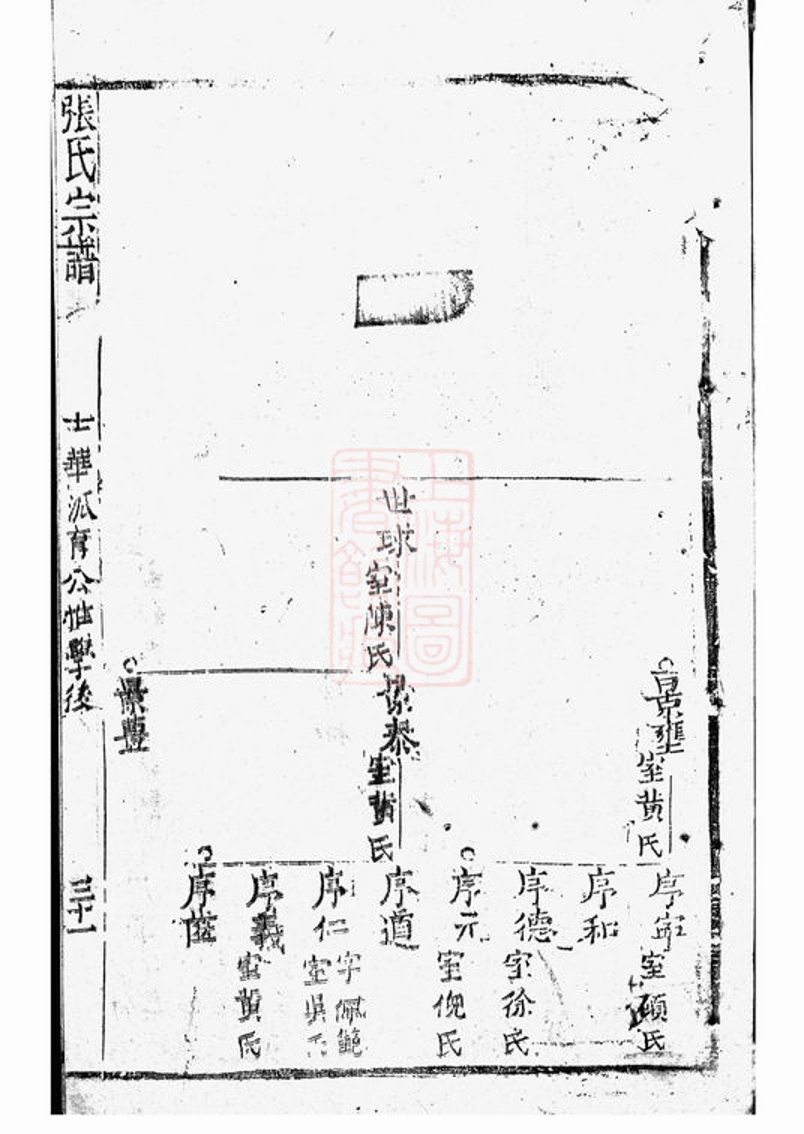 景雍
室黄氏
序寧
室顧氏
序和
序德
室徐氏
序元
室倪氏
世球
室陳氏
景泰
室黄氏
序道
序仁
字佩
室吳氏
序義
室黄氏
景豐
序
張氏宗譜
士華派育公世學後
三十一
上海圖書館藏